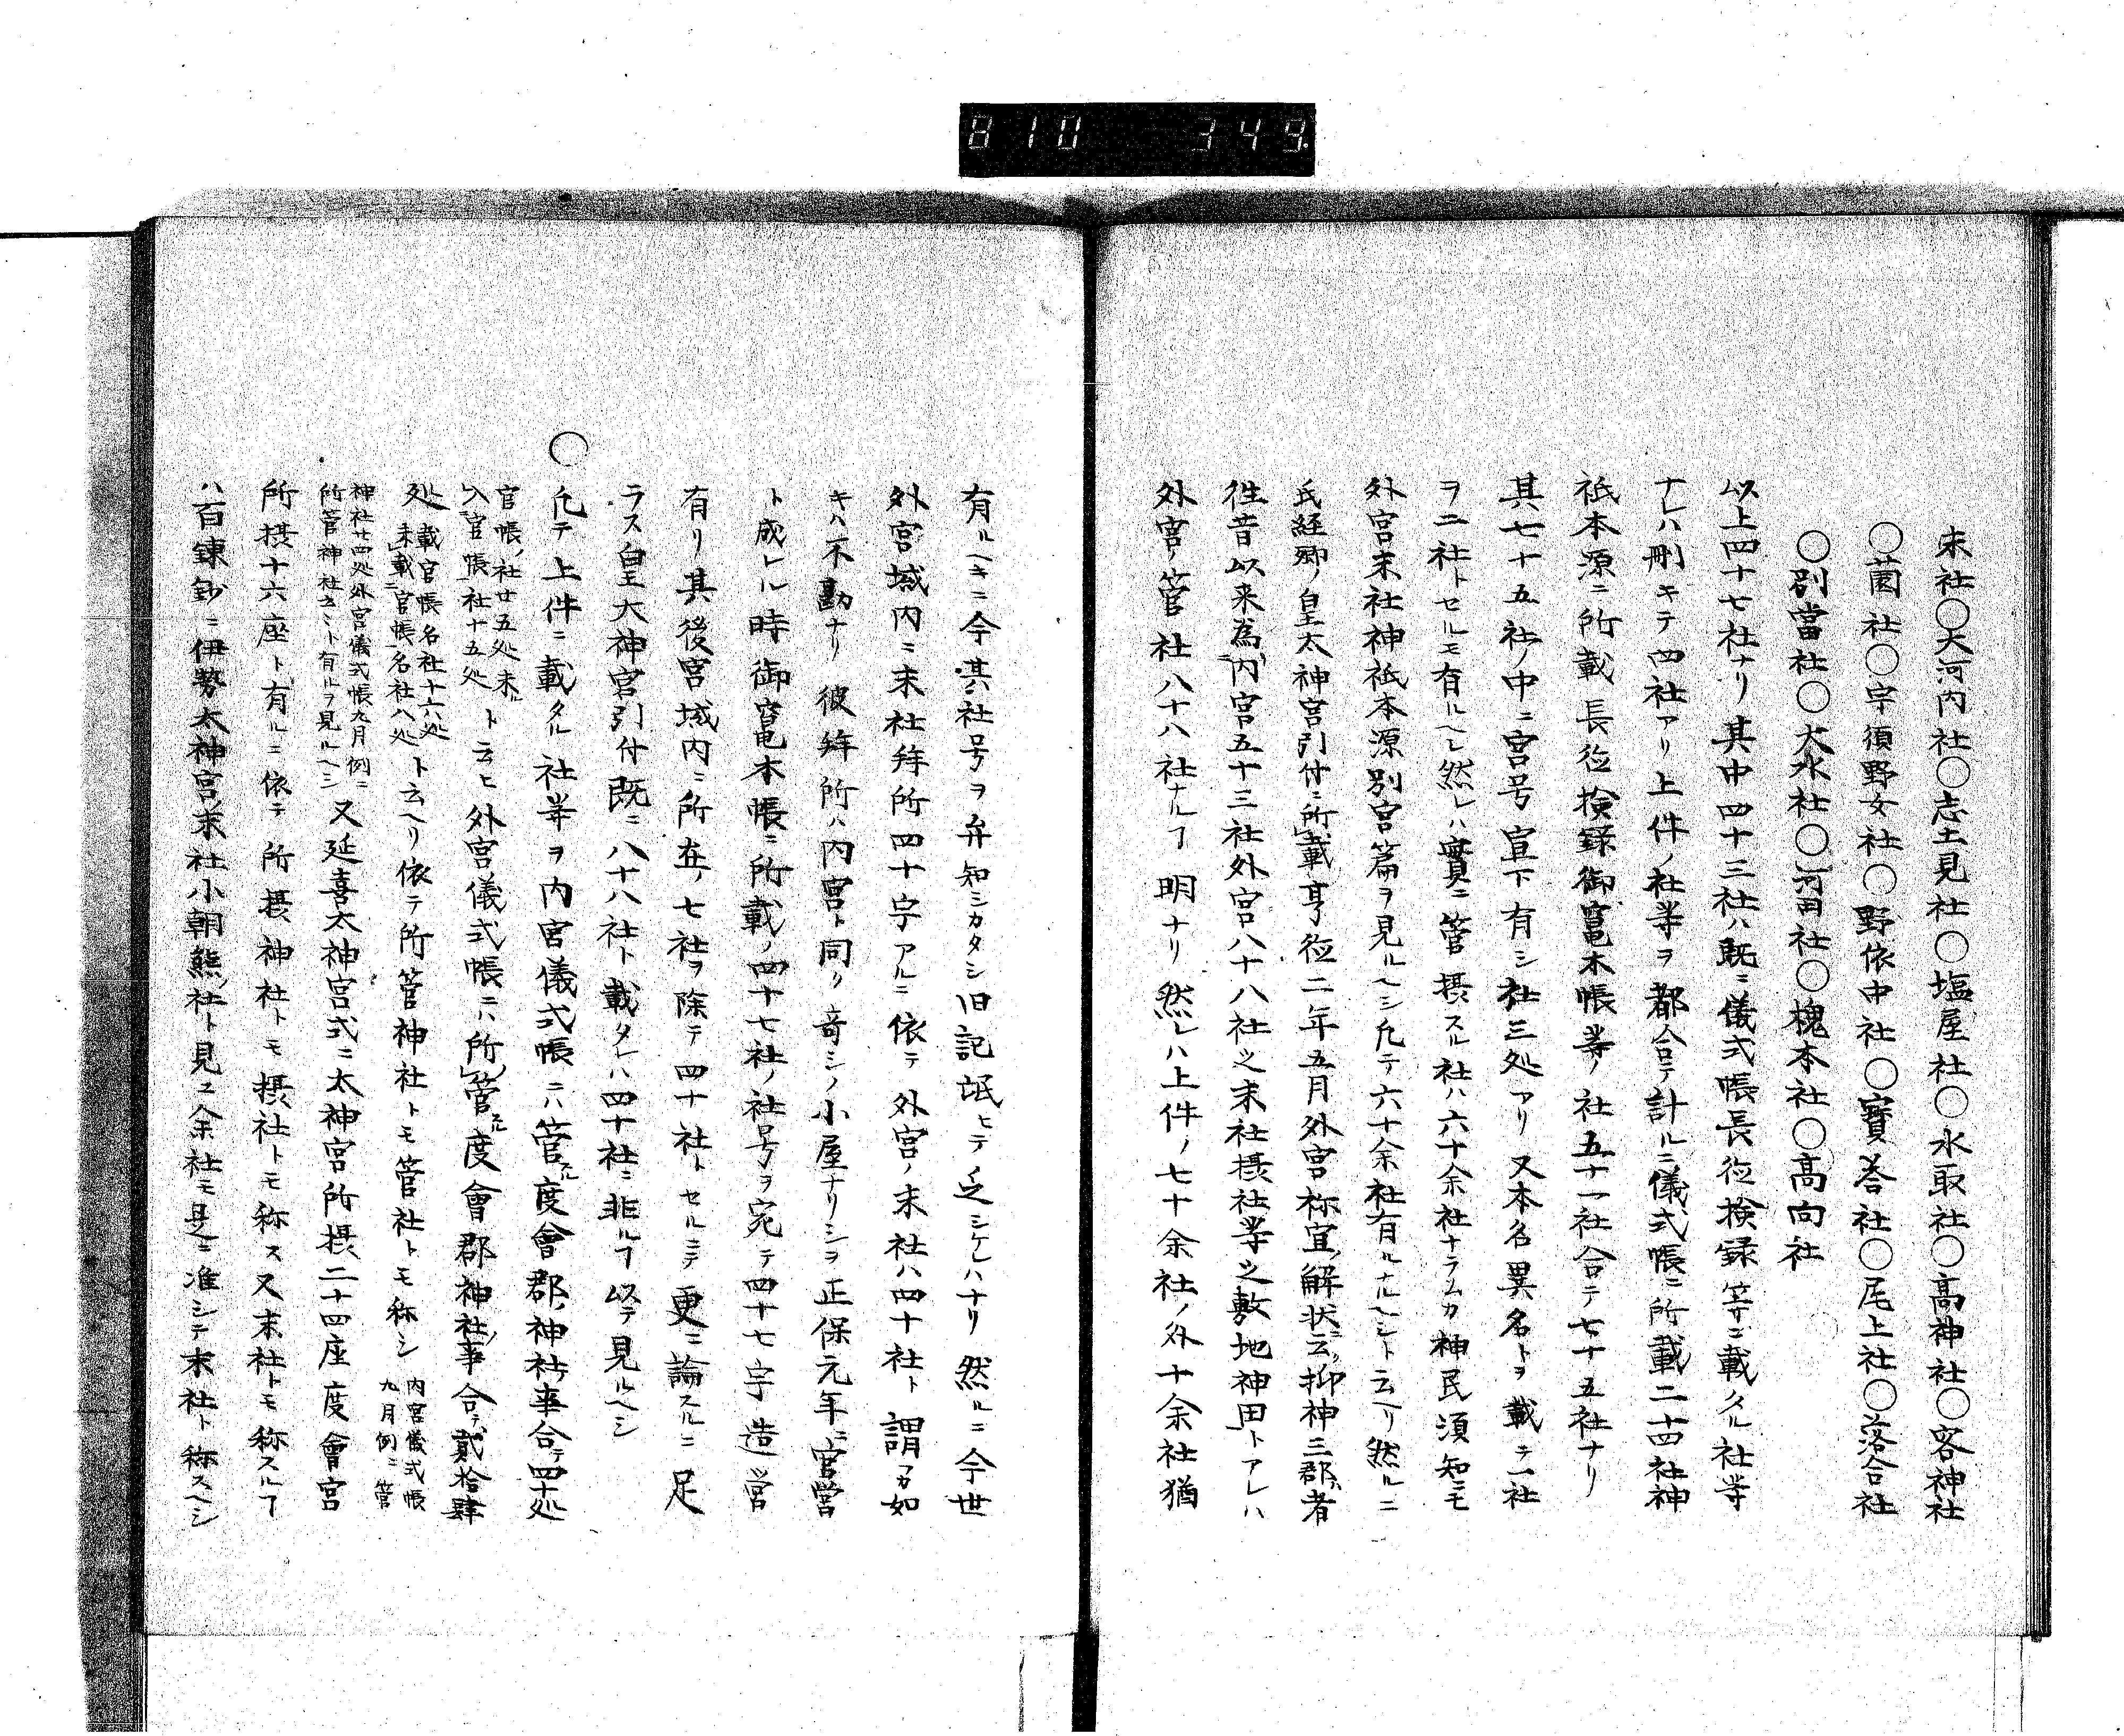 810 349
末社〇大河内社〇志土見社〇塩屋社〇水取社〇高神社〇客神社
〇薗社〇宇須野女社〇野依中社〇寳荅社〇尾上社〇落合社
〇別當社〇大水社〇河田社〇槐本社〇高向社
以上四十七社ナリ其中四十三社ハ既ニ儀式帳長徳検録等ニ載タル社等
ナレハ刪キテ四社アリ上件ノ社等ヲ都合テ計ルニ儀式帳ニ所載二十四社神
祇本源ニ所載長徳検録御竃木帳等ノ社五十一社合テ七十五社ナリ
其七十五社ノ中ニ宮号宣下有シ社三処アリ又本名異名トヲ載テ一社
ヲ二社トセルモ有ルヘシ然レハ實ニ管摂スル社ハ六十余社ナラムカ神民須知ニモ
外宮末社神祇本源別宮篇ヲ見ルヘシ凢テ六十余社有ルナルヘシト云ヘリ然ルニ
氏経郷ノ皇太神宮引付ニ所載享徳二年五月外宮祢宜解状云抑神三郡者
徃昔以来為内宮五十三社外宮八十八社之末社摂社等之敷地神田トアレハ
外宮ノ管社八十八社ナルヿ明ナリ然レハ上件ノ七十余社ノ外十余社猶
有ルヘキニ今其社号ヲ弁知シカタシ旧記泯ヒテ乏シケレハナリ然ルニ今世
外宮域内ニ末社拜所四十宇アルニ依テ外宮ノ末社ハ四十社ト謂フカ如
キハ不勘ナリ彼拜所ハ内宮ト同ク奇シノ小屋ナリシヲ正保元年ニ官營
ト成レル時御竃木帳ニ所載ノ四十七社ノ社号ヲ宛テ四十七宇造営
有リ其後宮域内ニ所在ノ七社ヲ除テ四十社トセルニテ更ニ論スルニ足
ラス皇太神宮引付既ニ八十八社ト載タレハ四十社ニ非ルヿ以テ見ルヘシ
〇凢テ上件ニ載タル社等ヲ内宮儀式帳ニハ管度會郡ノ神社事合テ四十処
官帳ノ社廿五処未ル
入官帳社十五処ト云ヒ外宮儀式帳ニハ所管度會郡神社事合テ貳拾肆
処載官帳名社十六処
未載官帳名社八処ト云ヘリ依テ所管神社トモ管社トモ称シ内宮儀式帳
九月例ニ管
神社廿四処外宮儀式帳九月例ニ
所管神社云々ト有ルヲ見ルヘシ又延喜太神宮式ニ太神宮所摂二十四座度會宮
所摂十六座ト有ルニ依テ所摂神社トモ摂社トモ称ス又末社トモ称スルヿ
ハ百錬鈔ニ伊勢太神宮末社小朝熊社ト見ユ余社モ是ニ准シテ末社ト称スヘシ